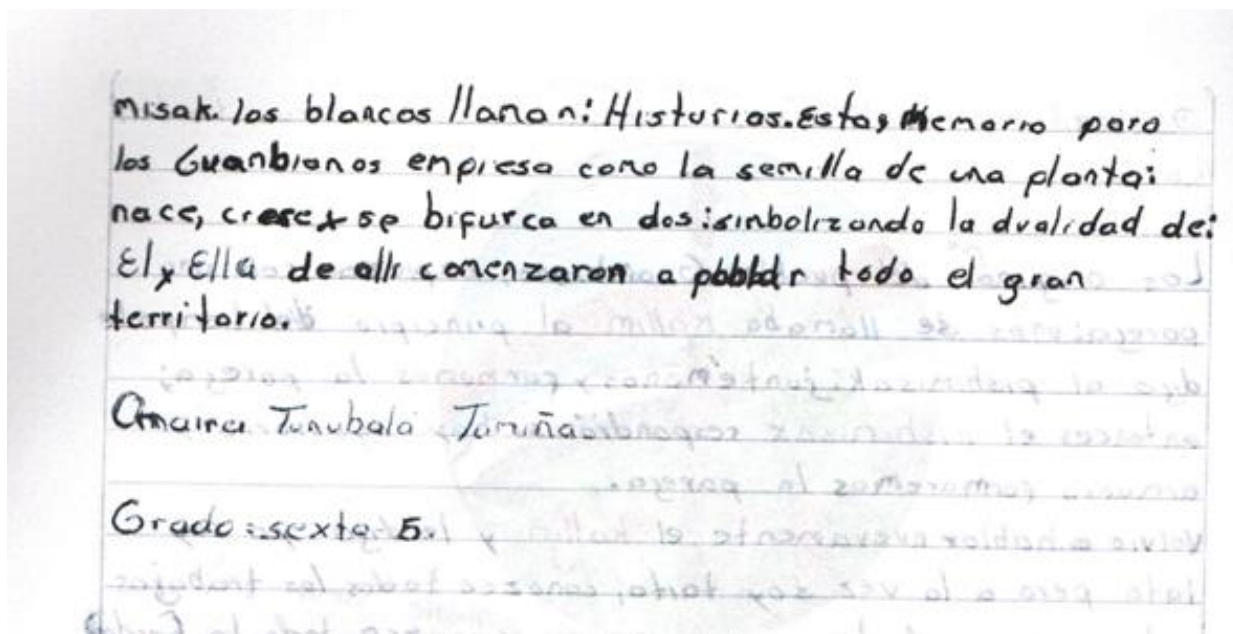 misak. los blancos llaman: Histurias. Esta, Memoria para
los Guanbianos empiesa como la semilla de una planta:
nace, crese y se bifurca en dos: sinbolizando la dualidad de:
El y Ella de alli comenzaron a poblar todo el gran
territorio.
Amaira Tunubala Tumiña
Grado: sexto 5.